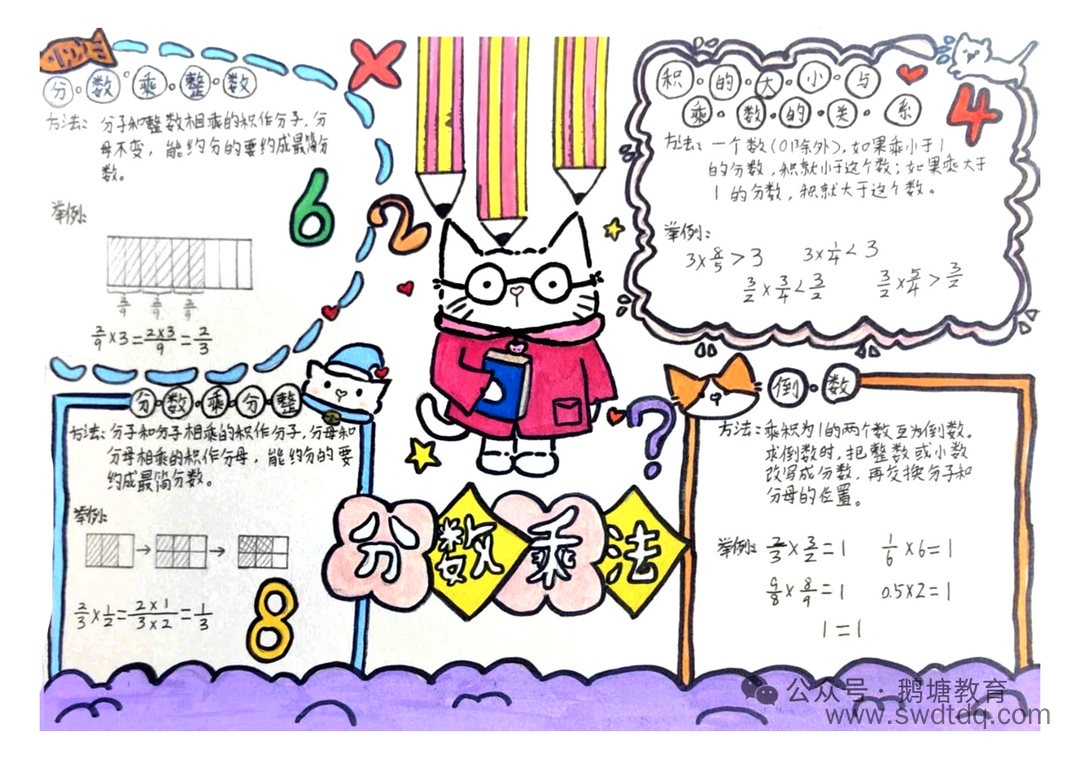 分数乘整数
方法：分子和整数相乘的积作分子，分
母不变，能约分的要约成最简分
数。
举例：
2/9 2/9 2/9
2/9×3=2×3/9=2/3
6
2
积的大小与
乘数的关系
4
方法：一个数（0除外），如果乘小于1
的分数，积就小于这个数；如果乘大于
1的分数，积就大于这个数。
举例：
3×8/5>3 3×1/4<3
3/2×3/4<3/2 3/2×5/4>3/2
分数乘分整
方法：分子和分子相乘的积作分子，分母和
分母相乘的积作分母，能约分的要
约成最简分数。
举例：
2/3×1/2=2×1/3×2=1/3
8
?
分数乘法
倒数
方法：乘积为1的两个数互为倒数。
求倒数时，把整数或小数
改写成分数，再交换分子和
分母的位置。
举例：2/3×3/2=1 1/6×6=1
9/8×8/9=1 0.5×2=1
1=1
公众号·鹅塘教育
www.swdtdq.com